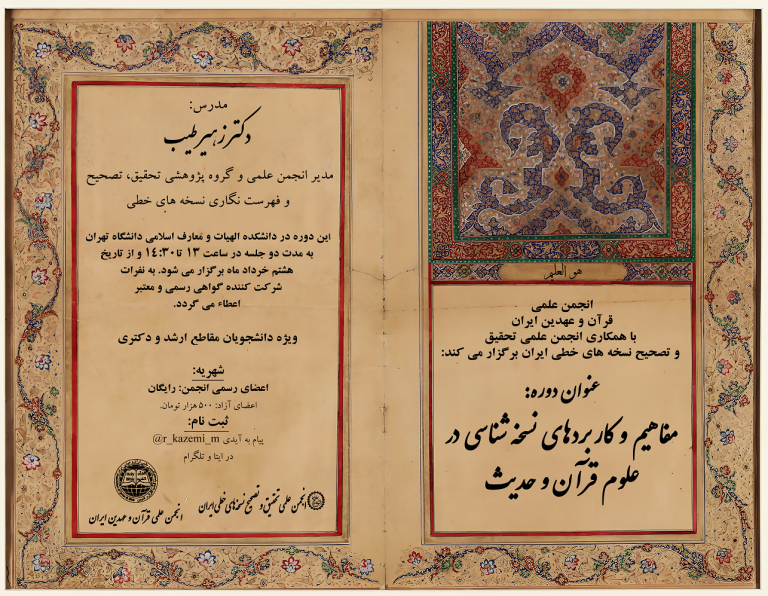 هو العلیم
انجمن علمی
قرآن و عهدین ایران
با همکاری انجمن علمی تحقیق
و تصحیح نسخه های خطی ایران برگزار می کند:
عنوان دوره:
مفاهیم و کاربردهای نسخه شناسی در
علوم قرآن و حدیث
مدرس:
دکتر زهیر طیب
مدیر انجمن علمی و گروه پژوهشی تحقیق، تصحیح
و فهرست نگاری نسخه های خطی
این دوره در دانشکده الهیات و معارف اسلامی دانشگاه تهران
به مدت دو جلسه در ساعت ۱۳ تا ۱۴:۳۰ و از تاریخ
هشتم خرداد ماه برگزار می شود. به نفرات
شرکت کننده گواهی رسمی و معتبر
اعطاء می گردد.
ویژه دانشجویان مقاطع ارشد و دکتری
شهریه:
اعضای رسمی انجمن: رایگان
اعضای آزاد: ۵۰۰ هزار تومان.
ثبت نام:
پیام به آیدی @r_kazemi_m
در ایتا و تلگرام
انجمن علمی تحقیق و تصحیح نسخه‌های خطی ایران
انجمن علمی قرآن و عهدین ایران